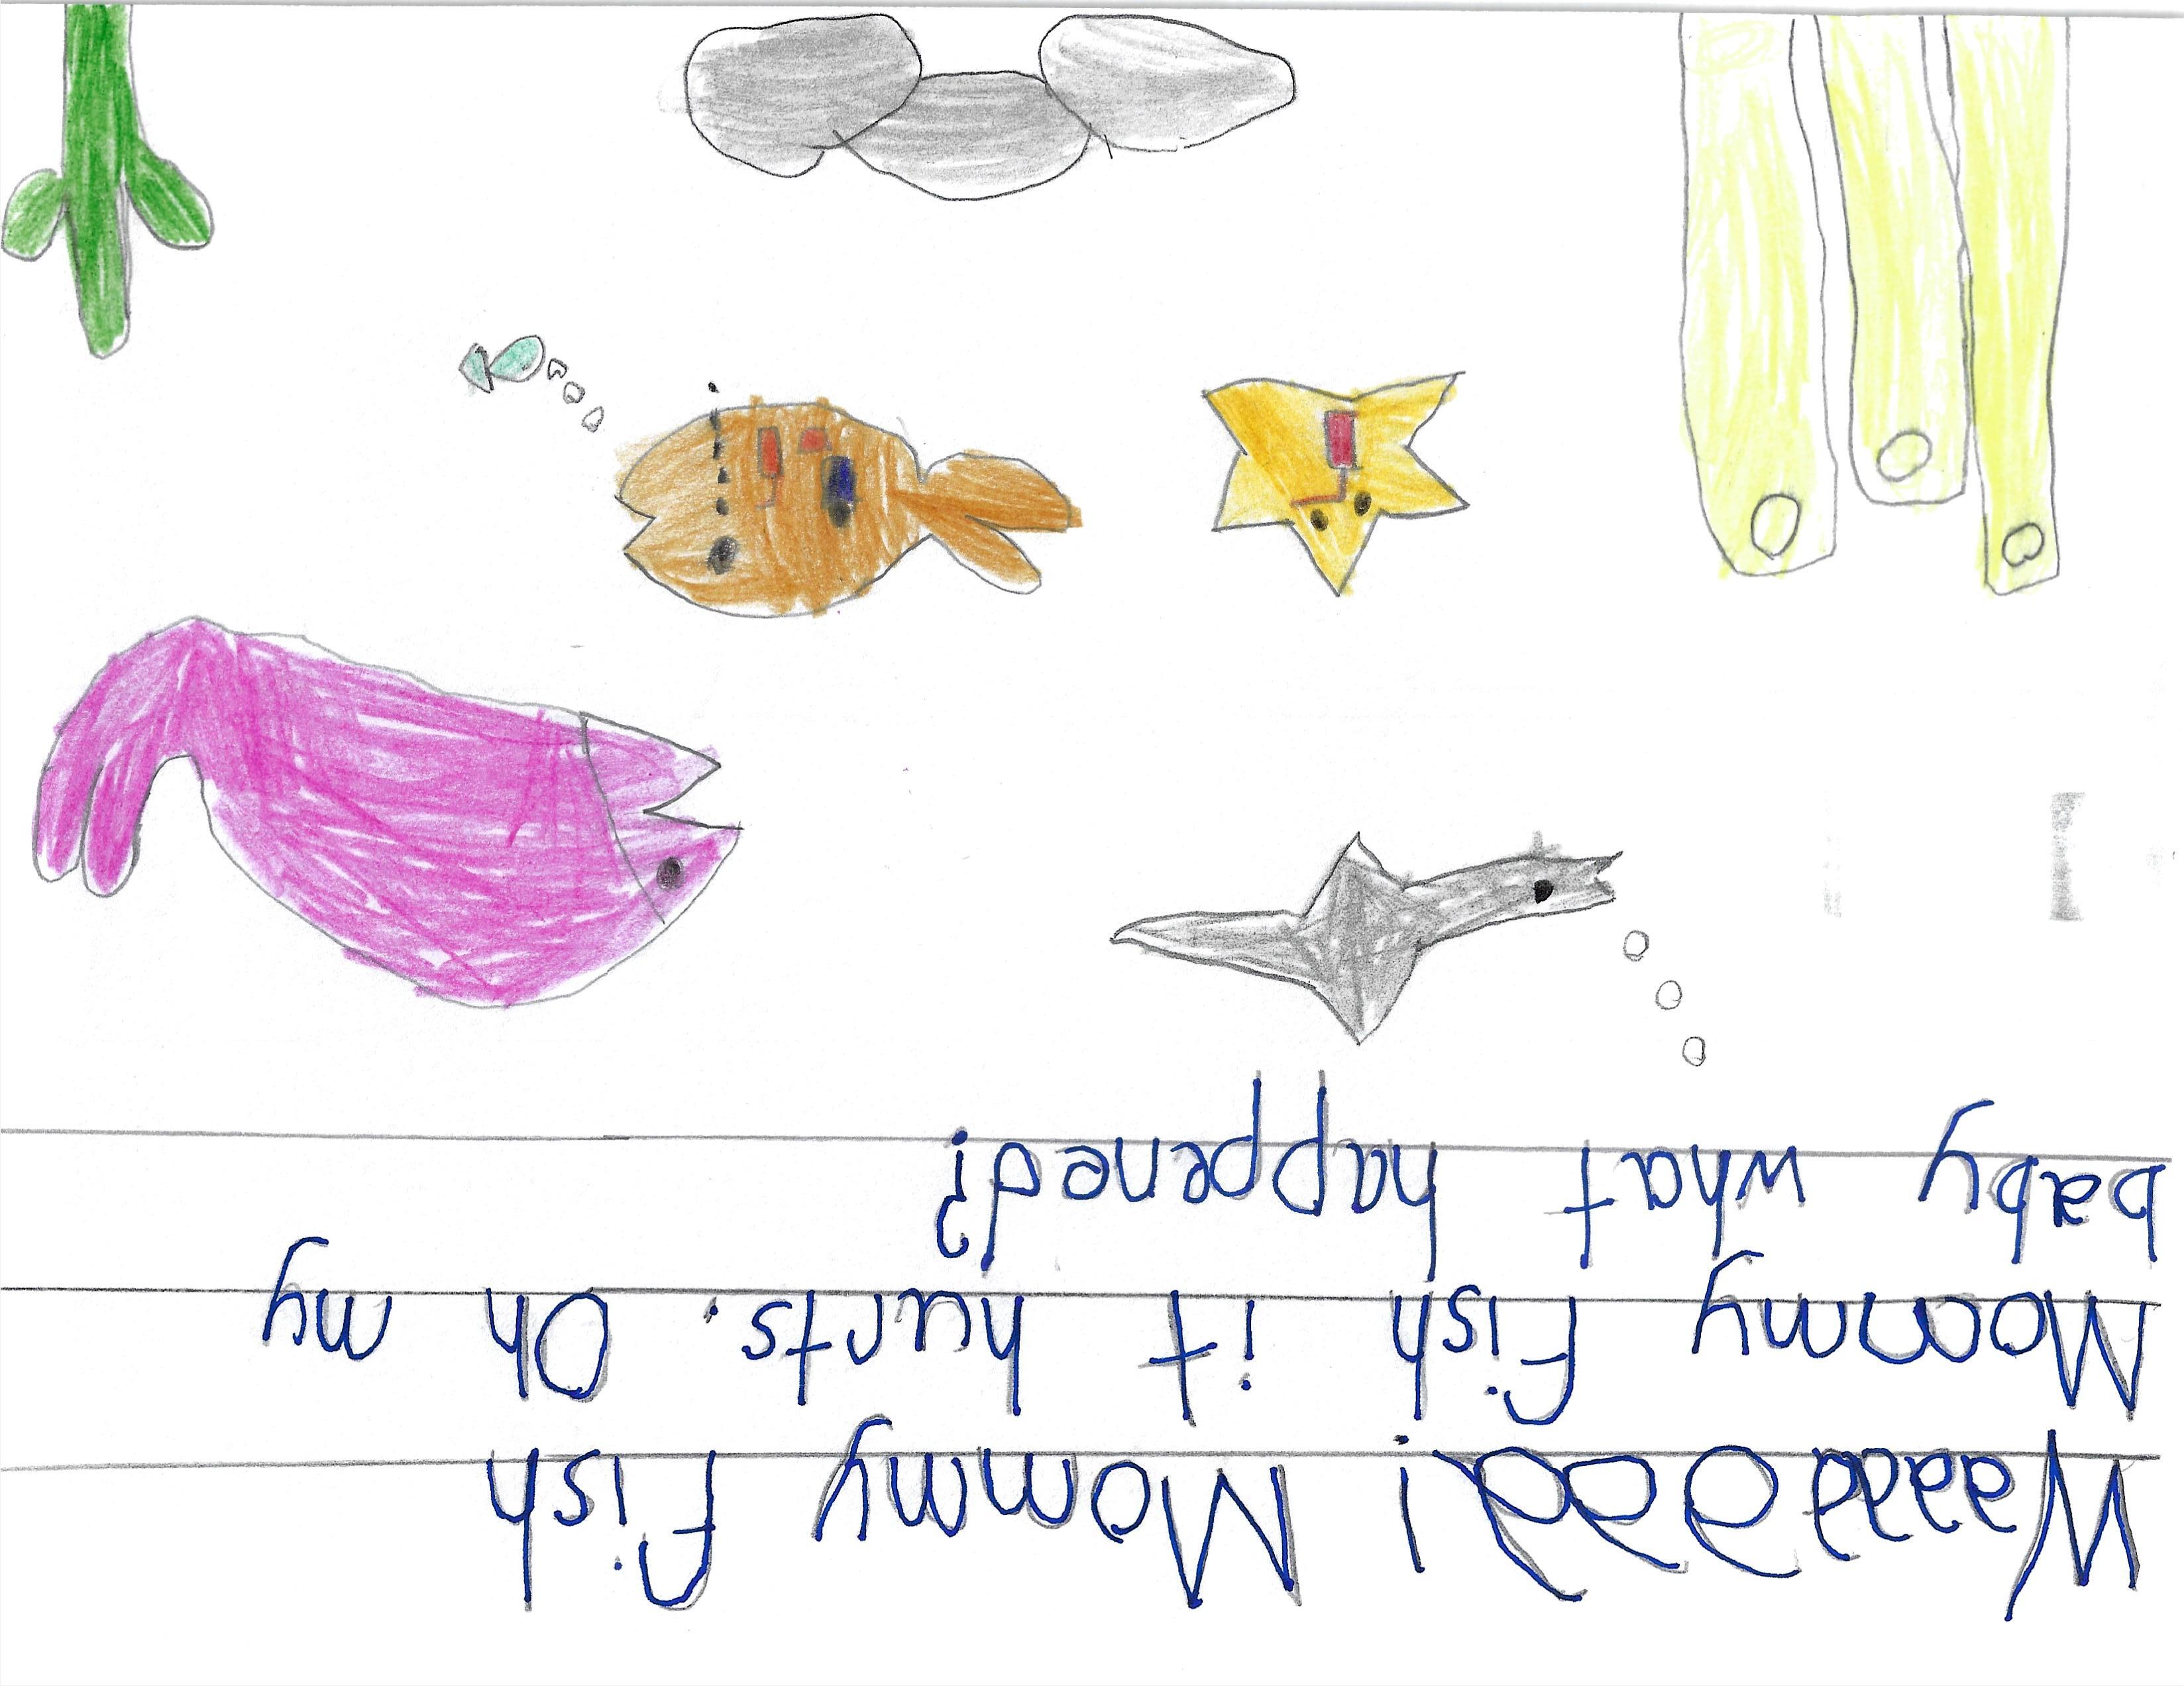 Waaaaaaaa! Mommy fish
Mommy fish it hurts. Oh my
baby what happened?